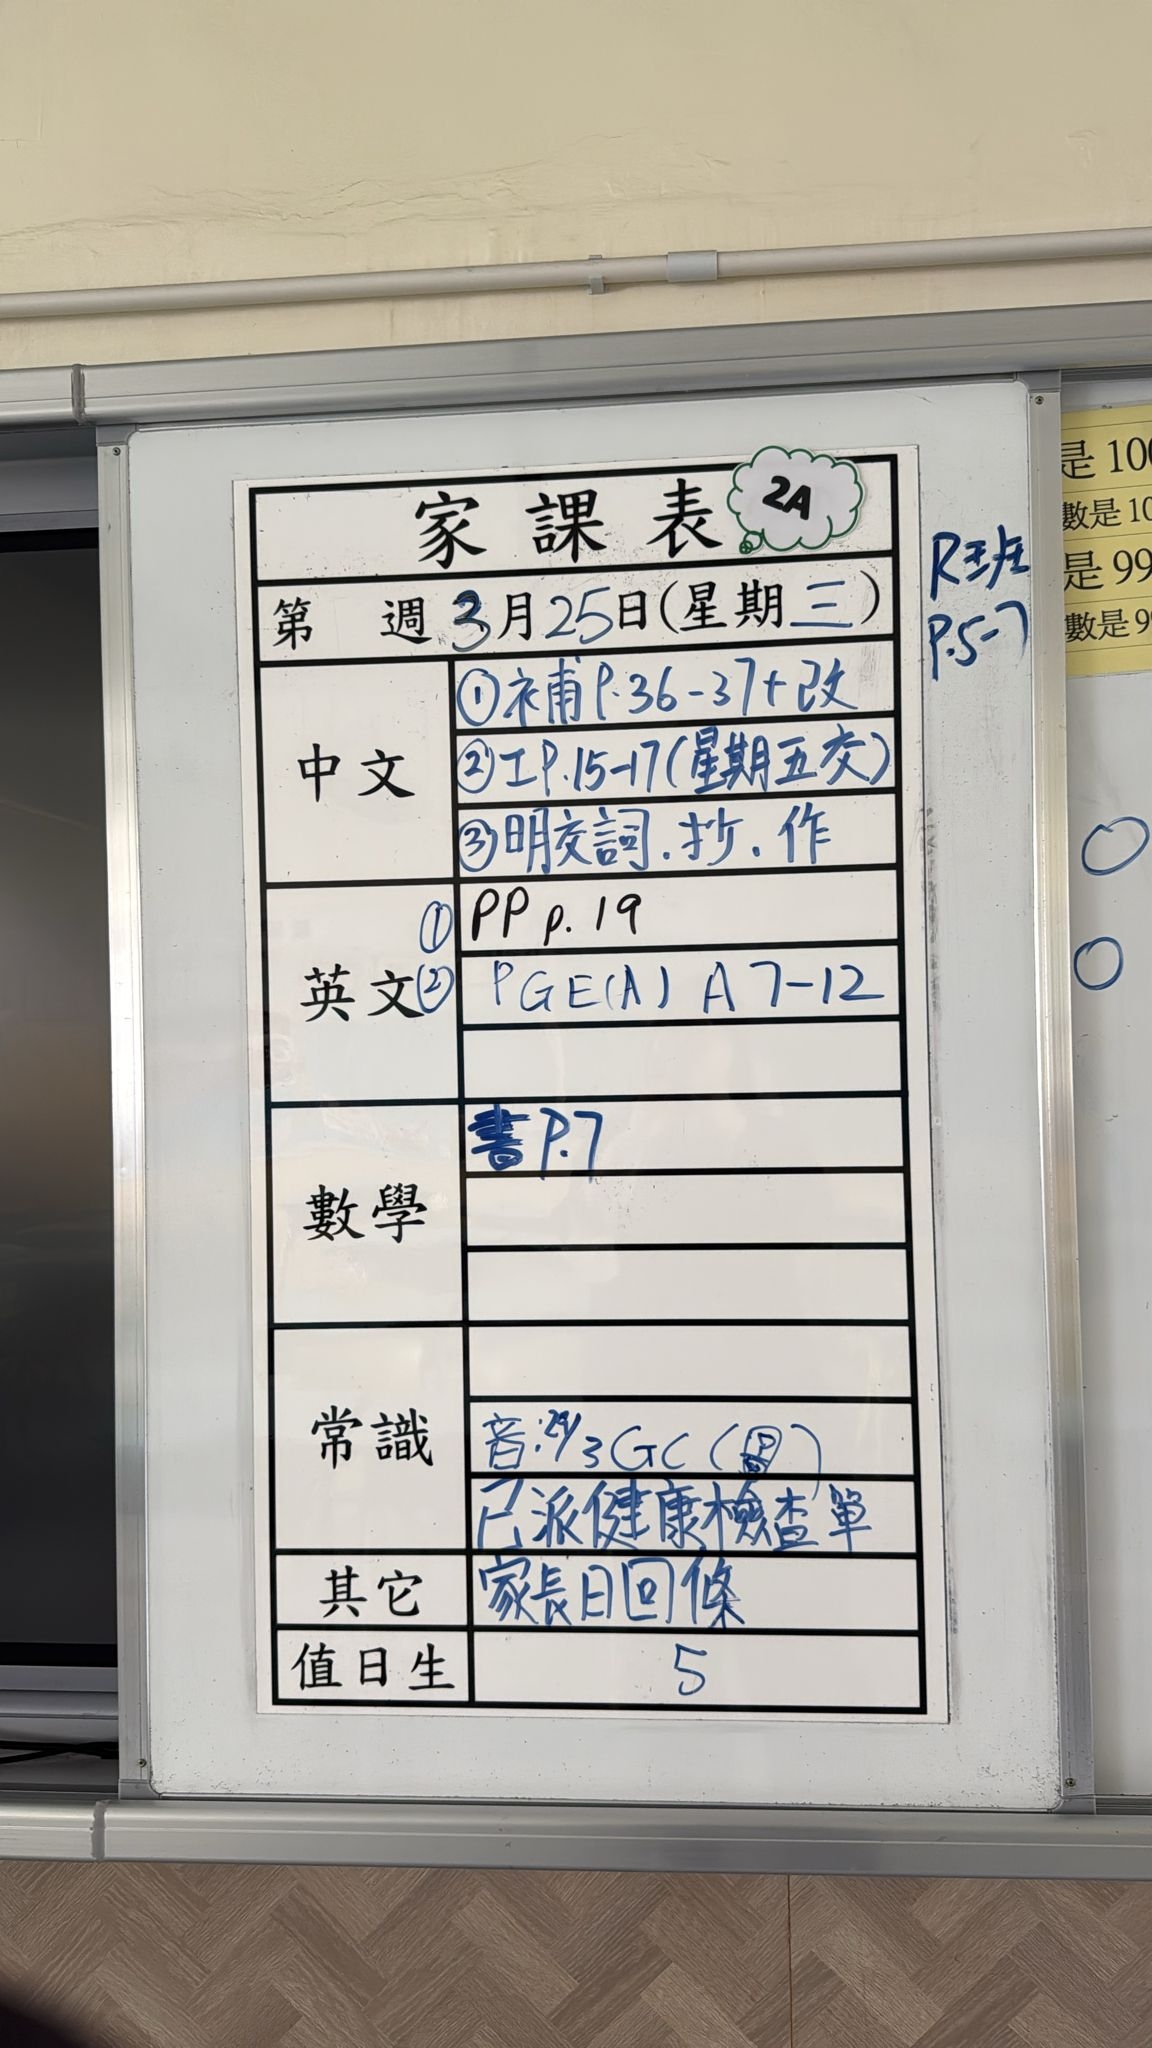 家課表 2A
第 週 3月25日(星期三)
中文
①補P.36-37+改
②工P.15-17(星期五交)
③明交詞.抄.作
英文
① PP p.19
② PGE(A) A7-12
數學
書P.7
常識
音:24/3 GC ( )
已派健康檢查單
其它
家長日回條
值日生
5
R班
P.5-7
是 100
數是 10
是 99
數是 99